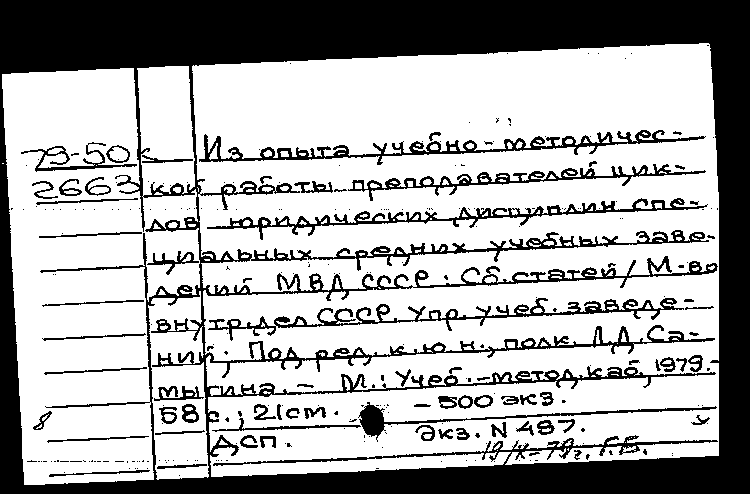 79-50к Из опыта учебно-методичес-
2663 кой работы преподавателей цик-
лов юридических дисциплин спе-
циальных средних учебных заве-
дений МВД СССР: Сб. статей / М-во
внутр. дел СССР. Упр. учеб. заведе-
ний; Под ред. к.ю.н., полк. Л.Д. Са-
мыгина. – М.: Учеб.-метод. каб., 1979.-
58 с.; 21 см. - 500 экз.
8 ДСП. Экз. N 487.
19/X-79г. Г.Б.